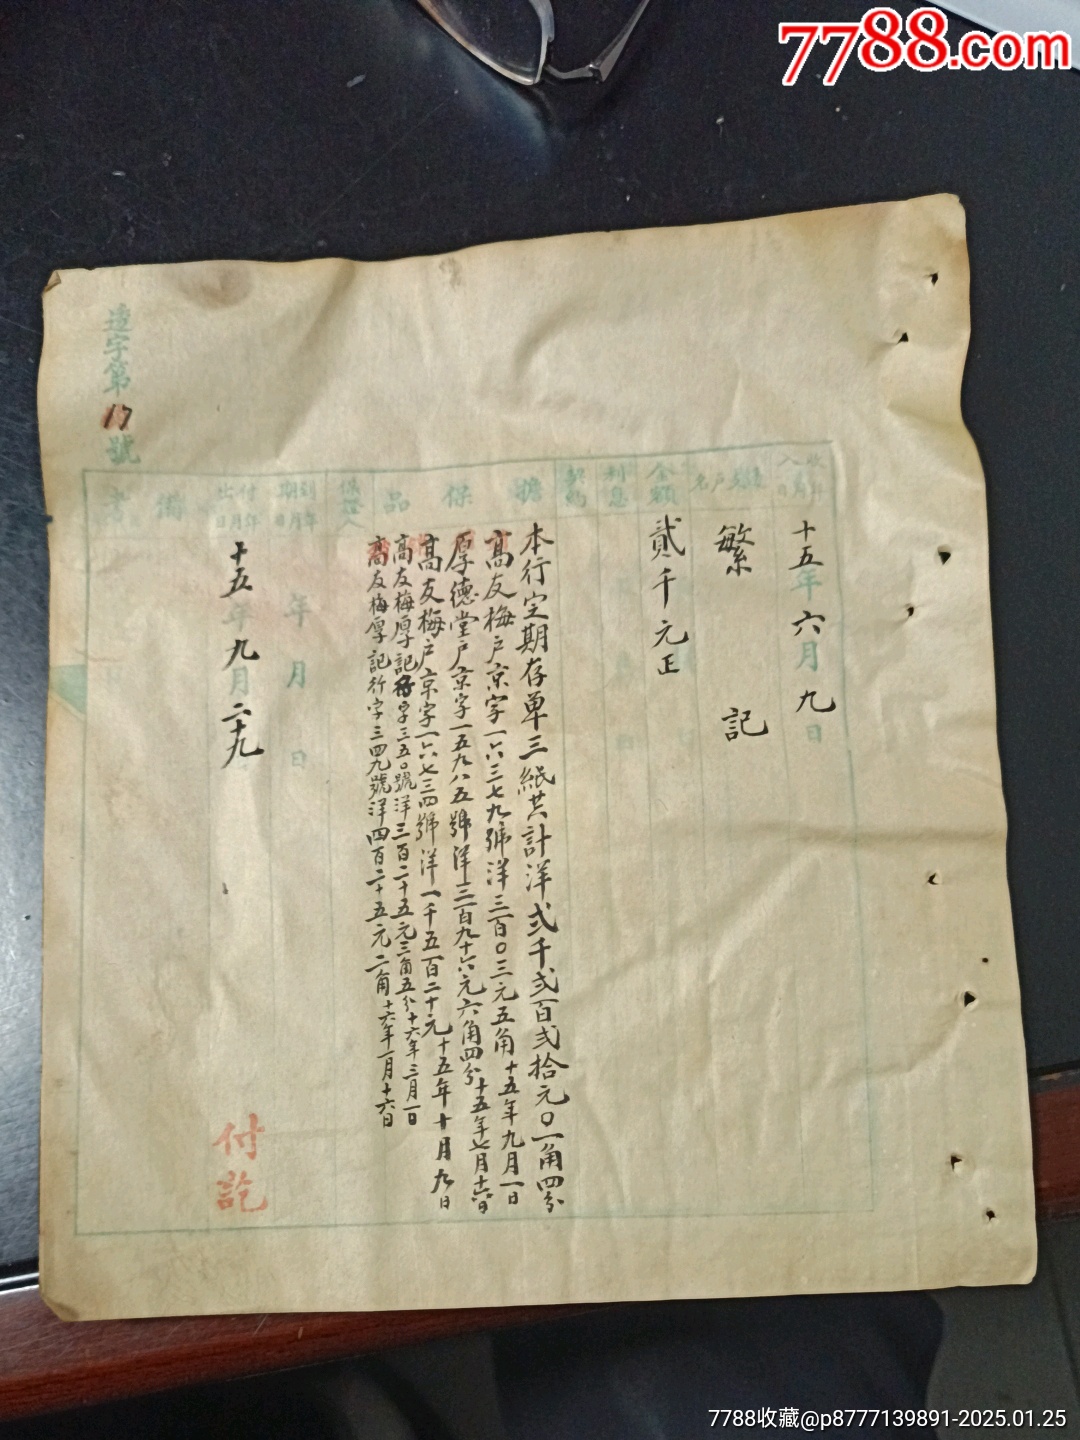 7788.com
造字第17號
收入年月日
十五年六月九日
戶名
繁記
金額
貳千元正
利息
契約
擔保品
本行定期存單三紙共計洋弍千弍百弍拾元〇一角四分
高友梅戶京字一六三七九號洋三百〇三元五角十五年九月一日
厚德堂戶京字一五九八五號洋三百九十六元六角四分十五年七月十六日
高友梅戶京字一六七三四號洋一千五百二十元十五年十月九日
高友梅厚記字三五〇號洋三百二十五元三角五分十六年三月一日
高友梅厚記行字三四九號洋四百二十五元二角十六年一月十六日
保證人
到期年月日
年月日
付出年月日
十五年九月二十九
付訖
備考
7788收藏@p8777139891-2025.01.25